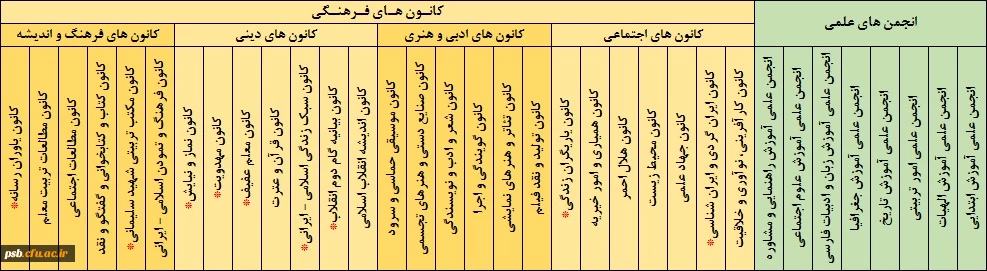 کانون هـای فـرهنـگـی
انجمن های علمی
کانون های اجتماعی
کانون های ادبی و هنری
کانون های دینی
کانون های فرهنگ و اندیشه
انجمن علمی آموزش ابتدایی
انجمن علمی آموزش الهیات
انجمن علمی امور تربیتی
انجمن علمی آموزش تاریخ
انجمن علمی آموزش جغرافیا
انجمن علمی آموزش زبان و ادبیات فارسی
انجمن علمی آموزش علوم اجتماعی
انجمن علمی آموزش راهنمایی و مشاوره
کانون کار آفرینی نو آوری و خلاقیت
کانون ایران گردی و ایران شناسی*
کانون جهادی علمی
کانون محیط زیست
کانون هلال احمر
کانون همیاری و امور خیریه
کانون یاریگران زندگی*
کانون تولید و نقد فیلم
کانون تئاتر و هنر های نمایشی
کانون گویندگی و اجرا
کانون شعر و ادب و نویسندگی
کانون صنایع دستی و هنرهای تجسمی
کانون موسیقی حماسی و سرود
کانون اندیشه انقلاب اسلامی
کانون بیانیه گام دوم انقلاب*
کانون سبک زندگی اسلامی - ایرانی*
کانون قرآن و عترت
کانون معلم عفیف*
کانون مهدویت*
کانون نماز و نیایش*
کانون فرهنگ و تمدن اسلامی - ایرانی
کانون مکتب تربیتی شهید سلیمانی*
کانون کتاب و کتابخوانی و گفتگو و نقد
کانون مطالعات اجتماعی
کانون مطالعات تربیت معلم
کانون یاوران رسانه*
psb.cfu.ac.ir